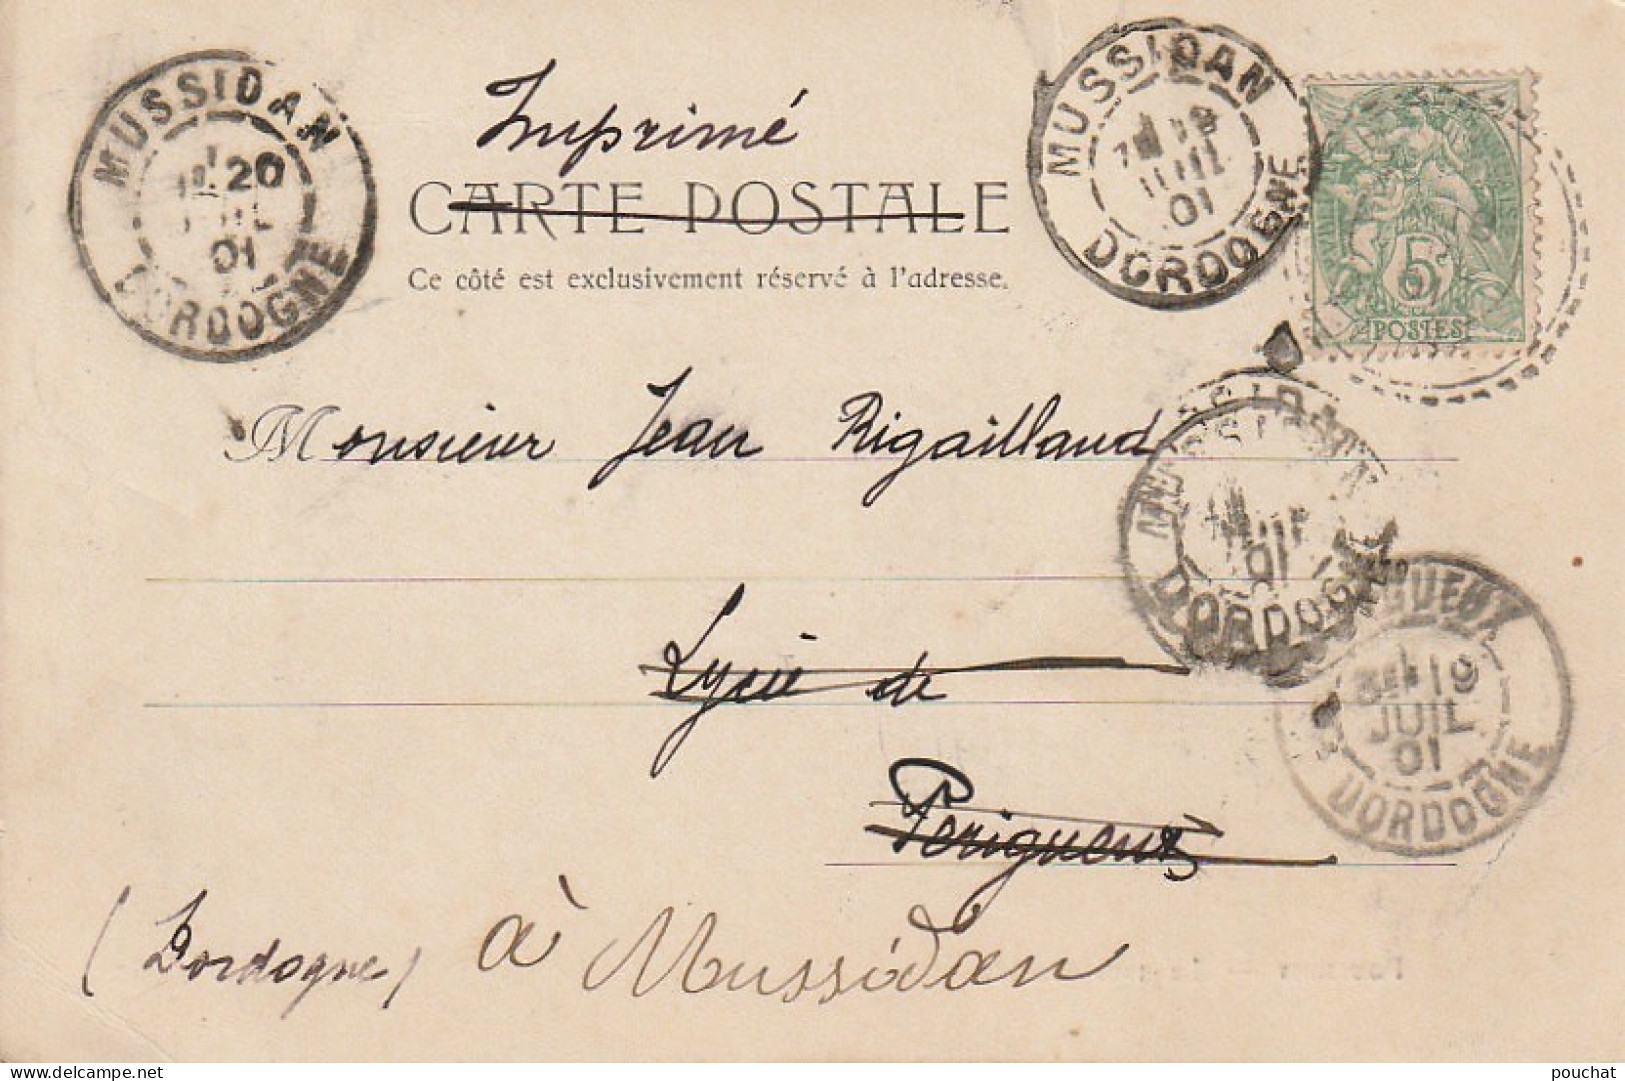 MUSSIDAN
20
01
DORDOGNE
Imprimé
CARTE POSTALE
Ce côté est exclusivement réservé à l'adresse.
MUSSIDAN
19
01
DORDOGNE
5
POSTES
Monsieur Jean Rigaillaud
DORDOGNE
01
Lycée de
GUEUX
19
JUIL
01
DORDOGNE
Périgueux
(Dordogne) à Mussidan
pouchat